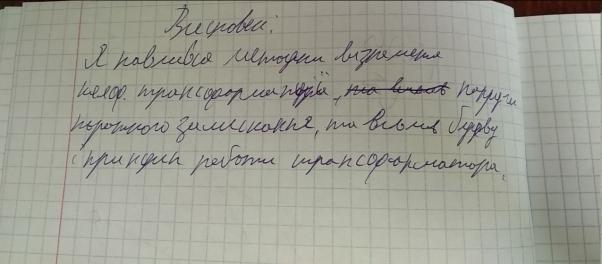 Висновок:
Я навчився методики визначення
коеф. трансформації, напруги
короткого замикання, та вивчив будову
і принцип роботи трансформатора.